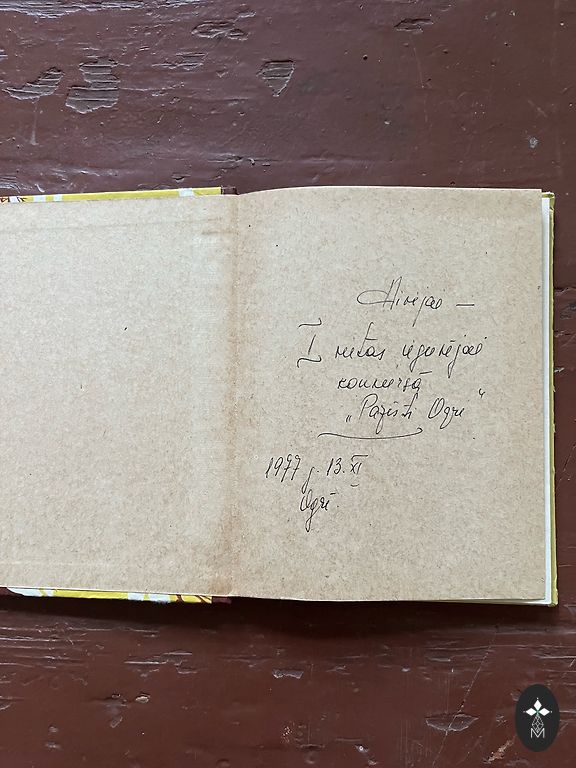 Mirejai —
I vietas ieguvējai
konkursā
„Pazīsti Ogri"
1977 g. 13. XI
Ogrē.
M